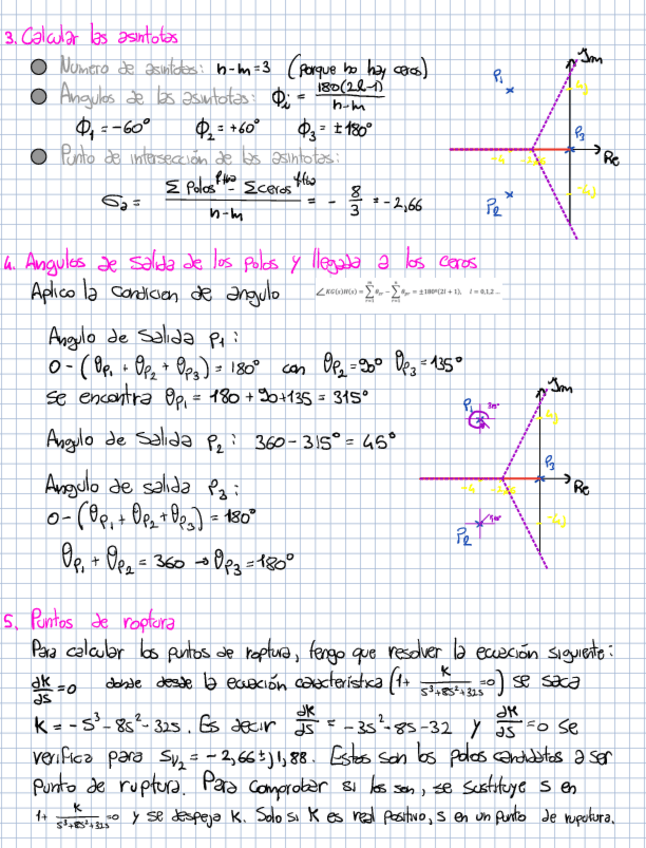 3. Calcular las asintotas
Numero de asintotas: n-m=3 (porque no hay ceros)
Angulos de las asintotas: Φi = 180(2l-1) / n-m
Φ1 = -60° Φ2 = +60° Φ3 = ±180°
Punto de intersección de las asintotas:
σa = Σ Polos finitos - Σ ceros finitos / n-m = - 8/3 = -2,66
Jm
P1
4j
P3
-4
Re
P2
-4j
4. Angulos de salida de los polos y llegada a los ceros
Aplico la condicion de angulo
Angulo de salida P1:
0-(θP1 + θP2 + θP3) = 180° con θP2=90° θP3=135°
se encontra θP1 = 180 + 90+135 = 315°
Angulo de salida P2: 360-315° = 45°
Angulo de salida P3:
0-(θP1 + θP2 + θP3) = 180°
θP1 + θP2 = 360 → θP3 = 180°
Jm
P1
4j
P3
-4
Re
P2
-4j
5. Puntos de roptura
Para calcular los puntos de roptura, tengo que resolver la ecuación siguiente:
dK/ds = 0 donde desde la ecuación caracteristica (1+ K/s³+8s²+32s =0) se saca
K = -s³ - 8s² - 32s. Es decir dK/ds = -3s²-8s-32 y dK/ds =0 se
verifica para s1/2 = -2,66 ± j1,88. Estos son los polos candidatos a ser
punto de ruptura. Para comprobar si los son, se sustituye s en
1+ K/s³+8s²+32s =0 y se despeja K. Solo si K es real positivo, s en un punto de rupotura.